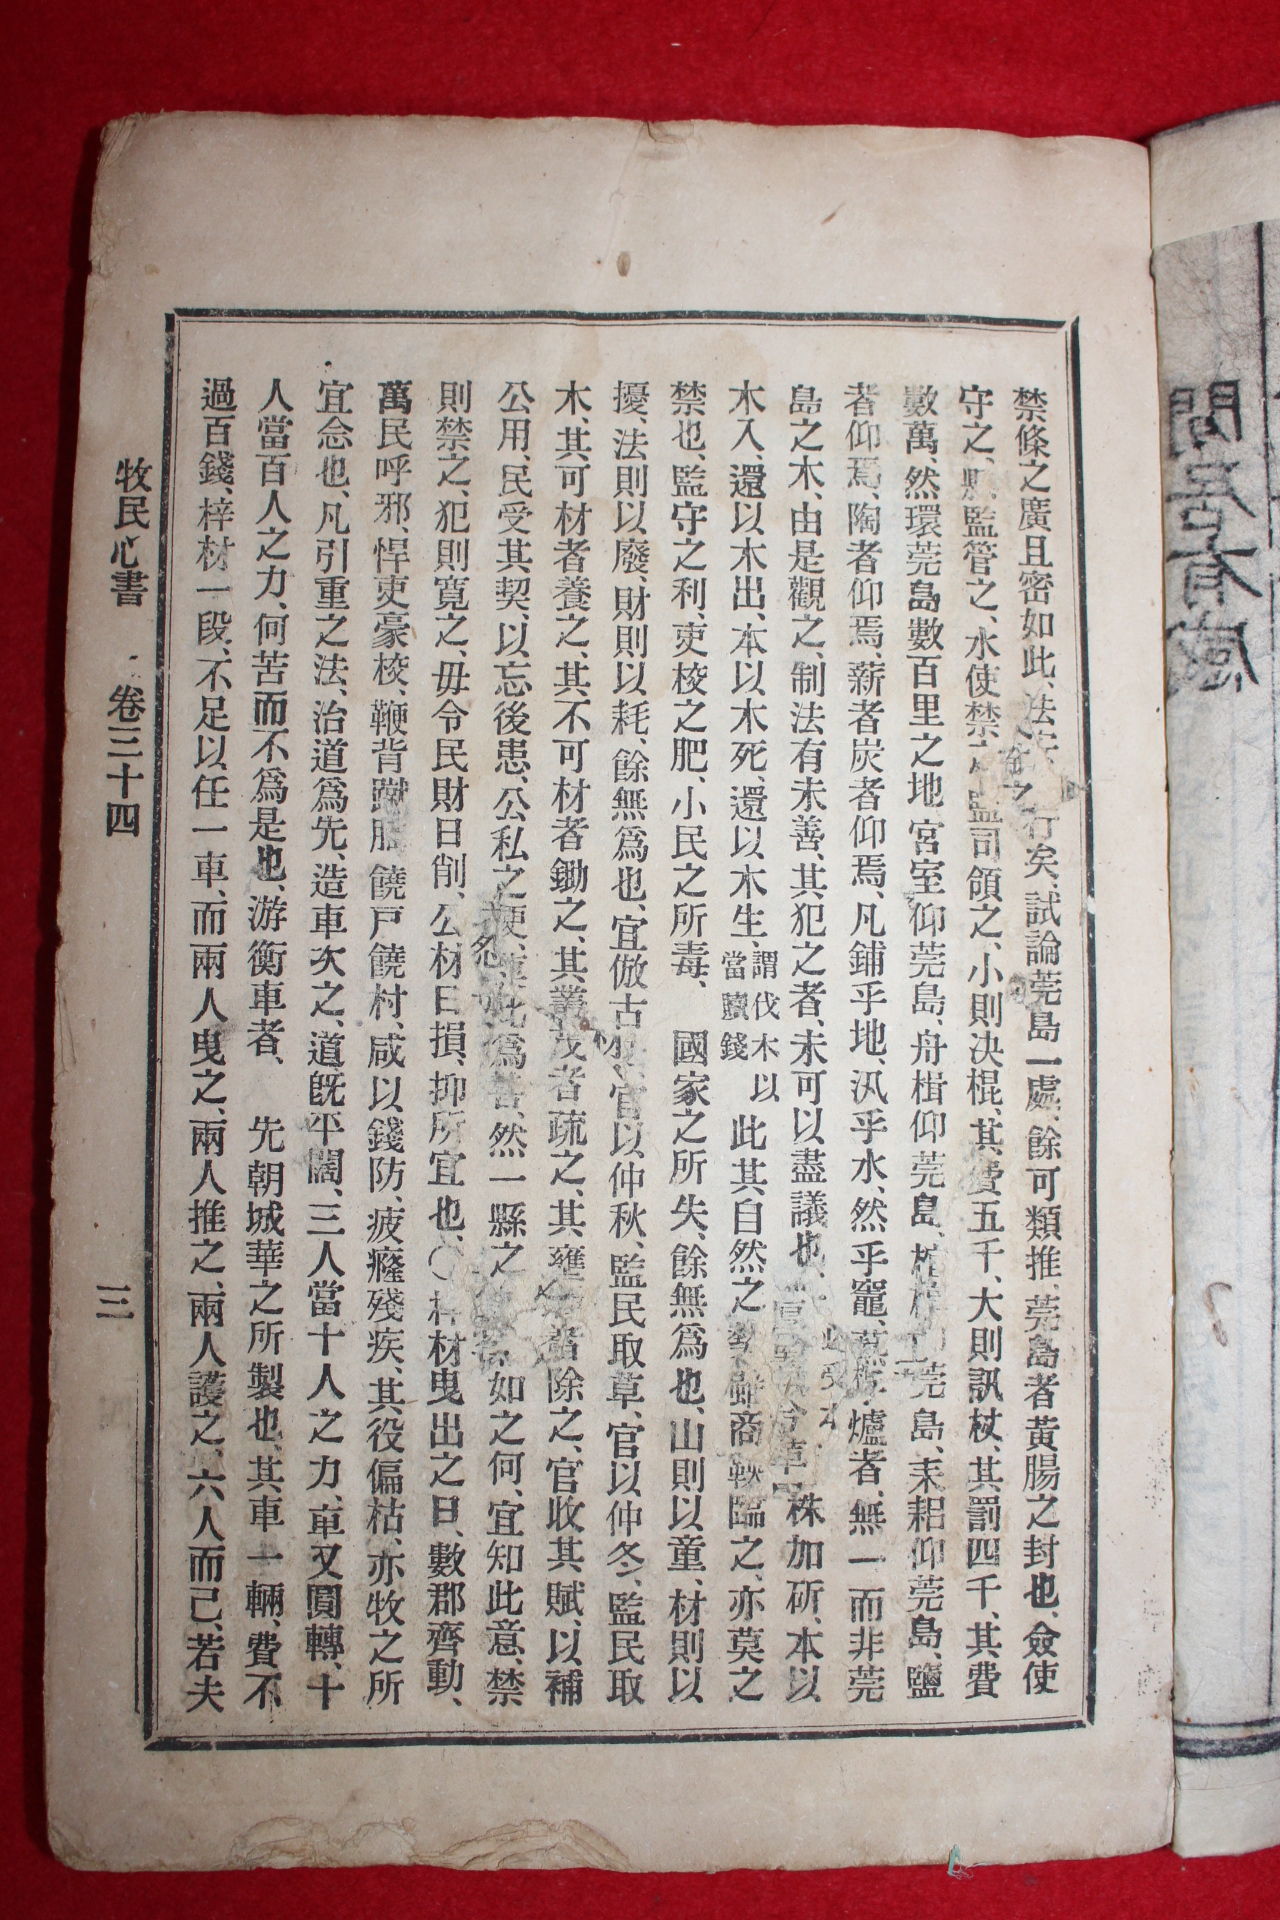 禁條之廣且密如此、法 行矣、試論莞島一處、餘可類推、莞島者黃腸之封也、僉使
守之、縣監管之、水使禁之 監司領之、小則決棍、其費五千、大則訊杖、其罰四千、其費
數萬、然環莞島數百里之地、宮室仰莞島、舟楫仰莞島、 莞島、耒耜仰莞島、鹽
者仰焉、陶者仰焉、薪者炭者仰焉、凡鋪乎地、汎乎水、然乎竈、 爐者、無一而非莞
島之木、由是觀之、制法有未善、其犯之者、未可以盡議也、 株加斫、本以
木入、還以木出、本以木死、還以木生、謂伐木以當贖錢 此其自然之勢、雖商鞅臨之、亦莫之
禁也、監守之利、吏校之肥、小民之所毒、 國家之所失、餘無爲也、山則以童、材則以
擾、法則以廢、財則以耗、餘無爲也、宜倣古 官以仲秋、監民取草、官以仲冬、監民取
木、其可材者養之、其不可材者鋤之、其叢茂者疏之、其壅 者除之、官收其賦、以補
公用、民受其契、以忘後患、公私之便、 此爲善、然一縣之 如之何、宜知此意、禁
則禁之、犯則寬之、毋令民財日削、公材日損、抑所宜也、〇 材曳出之日、數郡齊動、
萬民呼邪、悍吏豪校、鞭背蹴 饒戶饒村、咸以錢防、疲癃殘疾、其役偏枯、亦牧之所
宜念也、凡引重之法、治道爲先、造車次之、道旣平闊、三人當十人之力、車又圓轉、十
人當百人之力、何苦而不爲是也、游衡車者、 先朝城華之所製也、其車一輛、費不
過百錢、梓材一段、不足以任一車、而兩人曳之、兩人推之、兩人護之、六人而已、若夫
牧民心書 卷三十四 三